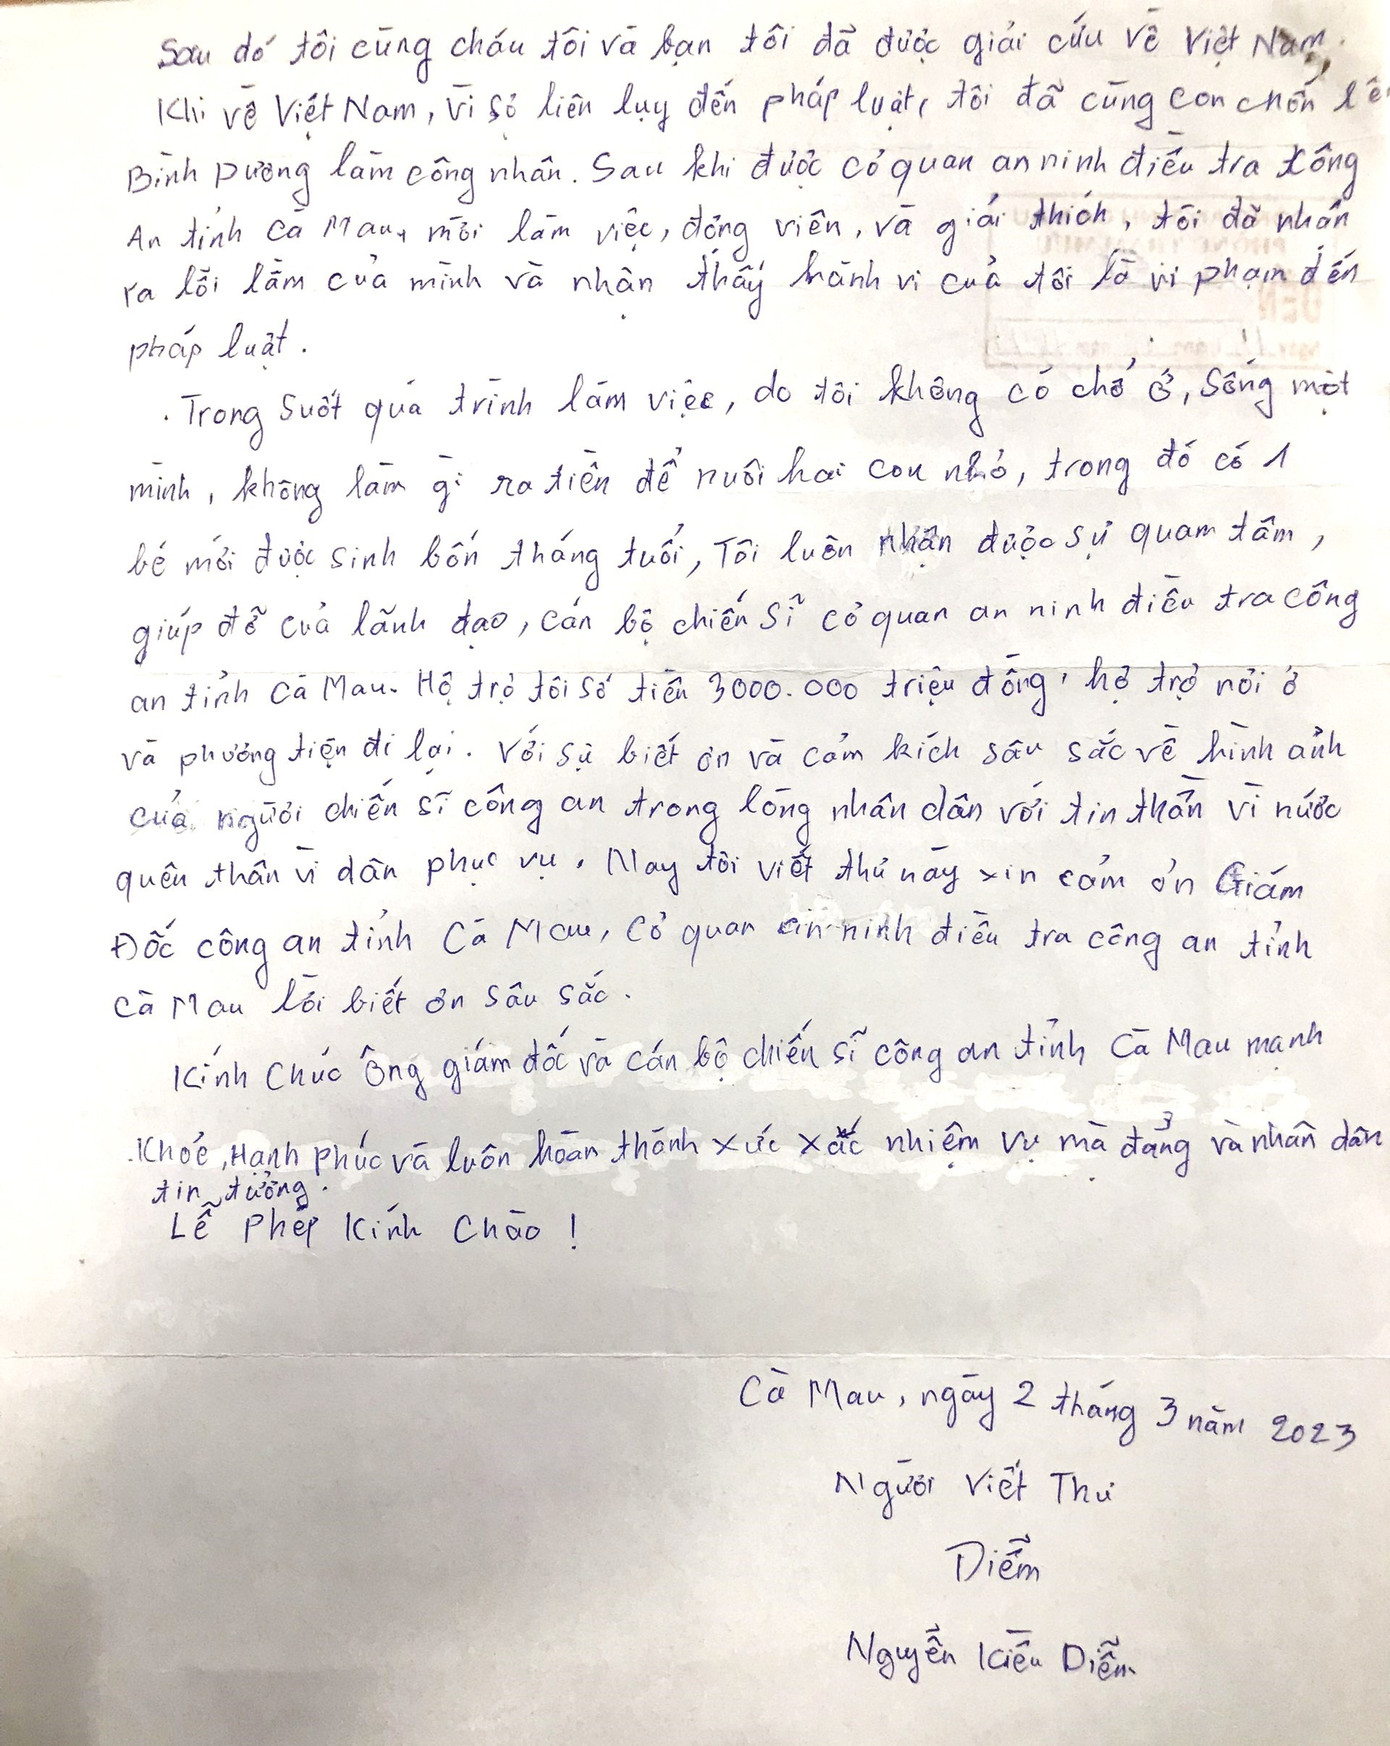 Sau đó tôi cùng cháu tôi và bạn tôi đã được giải cứu về Việt Nam.
Khi về Việt Nam, vì sợ liên lụy đến pháp luật, tôi đã cùng con chốn lên
Bình Dương làm công nhân. Sau khi được cơ quan an ninh điều tra Công
An tỉnh Cà Mau, mời làm việc, động viên, và giải thích, tôi đã nhận
ra lỗi lầm của mình và nhận thấy hành vi của tôi là vi phạm đến
pháp luật.
. Trong suốt quá trình làm việc, do tôi không có chỗ ở, sống một
mình, không làm gì ra tiền để nuôi hai con nhỏ, trong đó có 1
bé mới được sinh bốn tháng tuổi, Tôi luôn nhận được sự quam tâm,
giúp đỡ của lãnh đạo, cán bộ chiến sĩ cơ quan an ninh điều tra công
an tỉnh Cà Mau. Hỗ trợ tôi số tiền 3000.000 triệu đồng, hỗ trợ nơi ở
và phương tiện đi lại. Với sự biết ơn và cảm kích sâu sắc về hình ảnh
của người chiến sĩ công an trong lòng nhân dân với tin thần vì nước
quên thân vì dân phục vụ. Nay tôi viết thư này xin cảm ơn Giám
Đốc công an tỉnh Cà Mau, Cơ quan an ninh điều tra công an tỉnh
Cà Mau lời biết ơn sâu sắc.
Kính Chúc Ông giám đốc và cán bộ chiến sĩ công an tỉnh Cà Mau mạnh
Khỏe, Hạnh phúc và luôn hoàn thành xức xắc nhiệm vụ mà đảng và nhân dân
tin tưởng.
Lễ Phép Kính Chào !
Cà Mau, ngày 2 tháng 3 năm 2023
Người Viết Thư
Diễm
Nguyễn Kiều Diễm